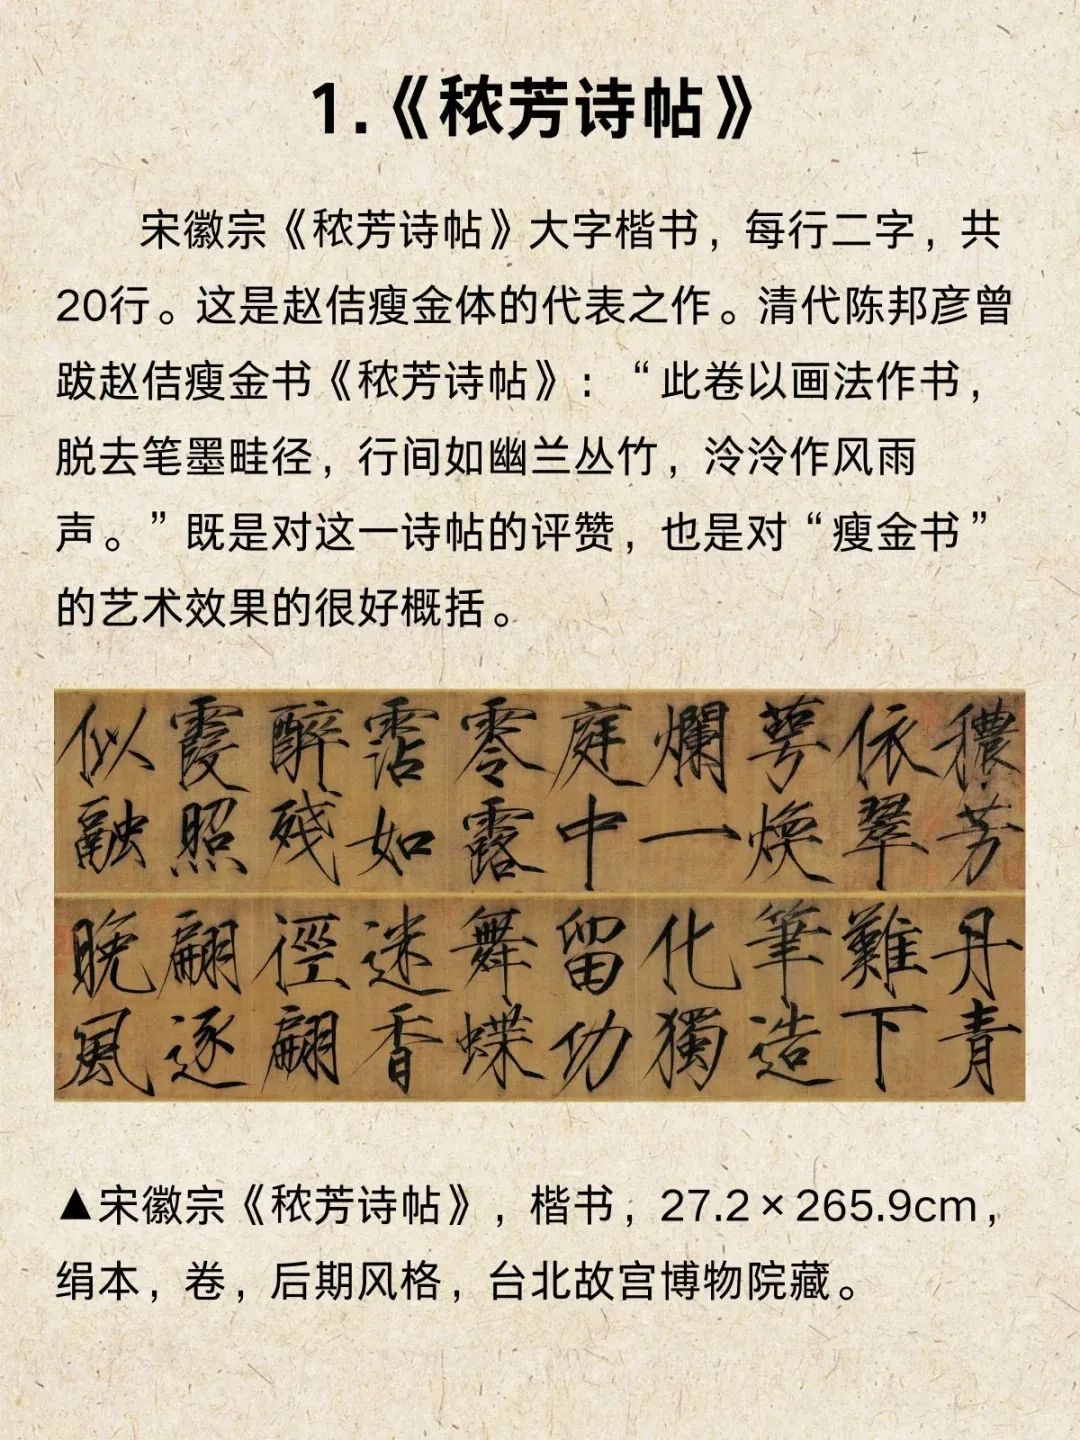 1.《秾芳诗帖》
宋徽宗《秾芳诗帖》大字楷书，每行二字，共
20行。这是赵佶瘦金体的代表之作。清代陈邦彦曾
跋赵佶瘦金书《秾芳诗帖》：“此卷以画法作书，
脱去笔墨畦径，行间如幽兰丛竹，泠泠作风雨
声。”既是对这一诗帖的评赞，也是对“瘦金书”
的艺术效果的很好概括。
穠芳
依翠
萼煥
爛一
庭中
零露
霑如
醉殘
霞照
似融
丹青
難下
筆造
化獨
留功
舞蝶
迷香
徑翩
翩逐
晚風
▲宋徽宗《秾芳诗帖》，楷书，27.2×265.9cm，
绢本，卷，后期风格，台北故宫博物院藏。